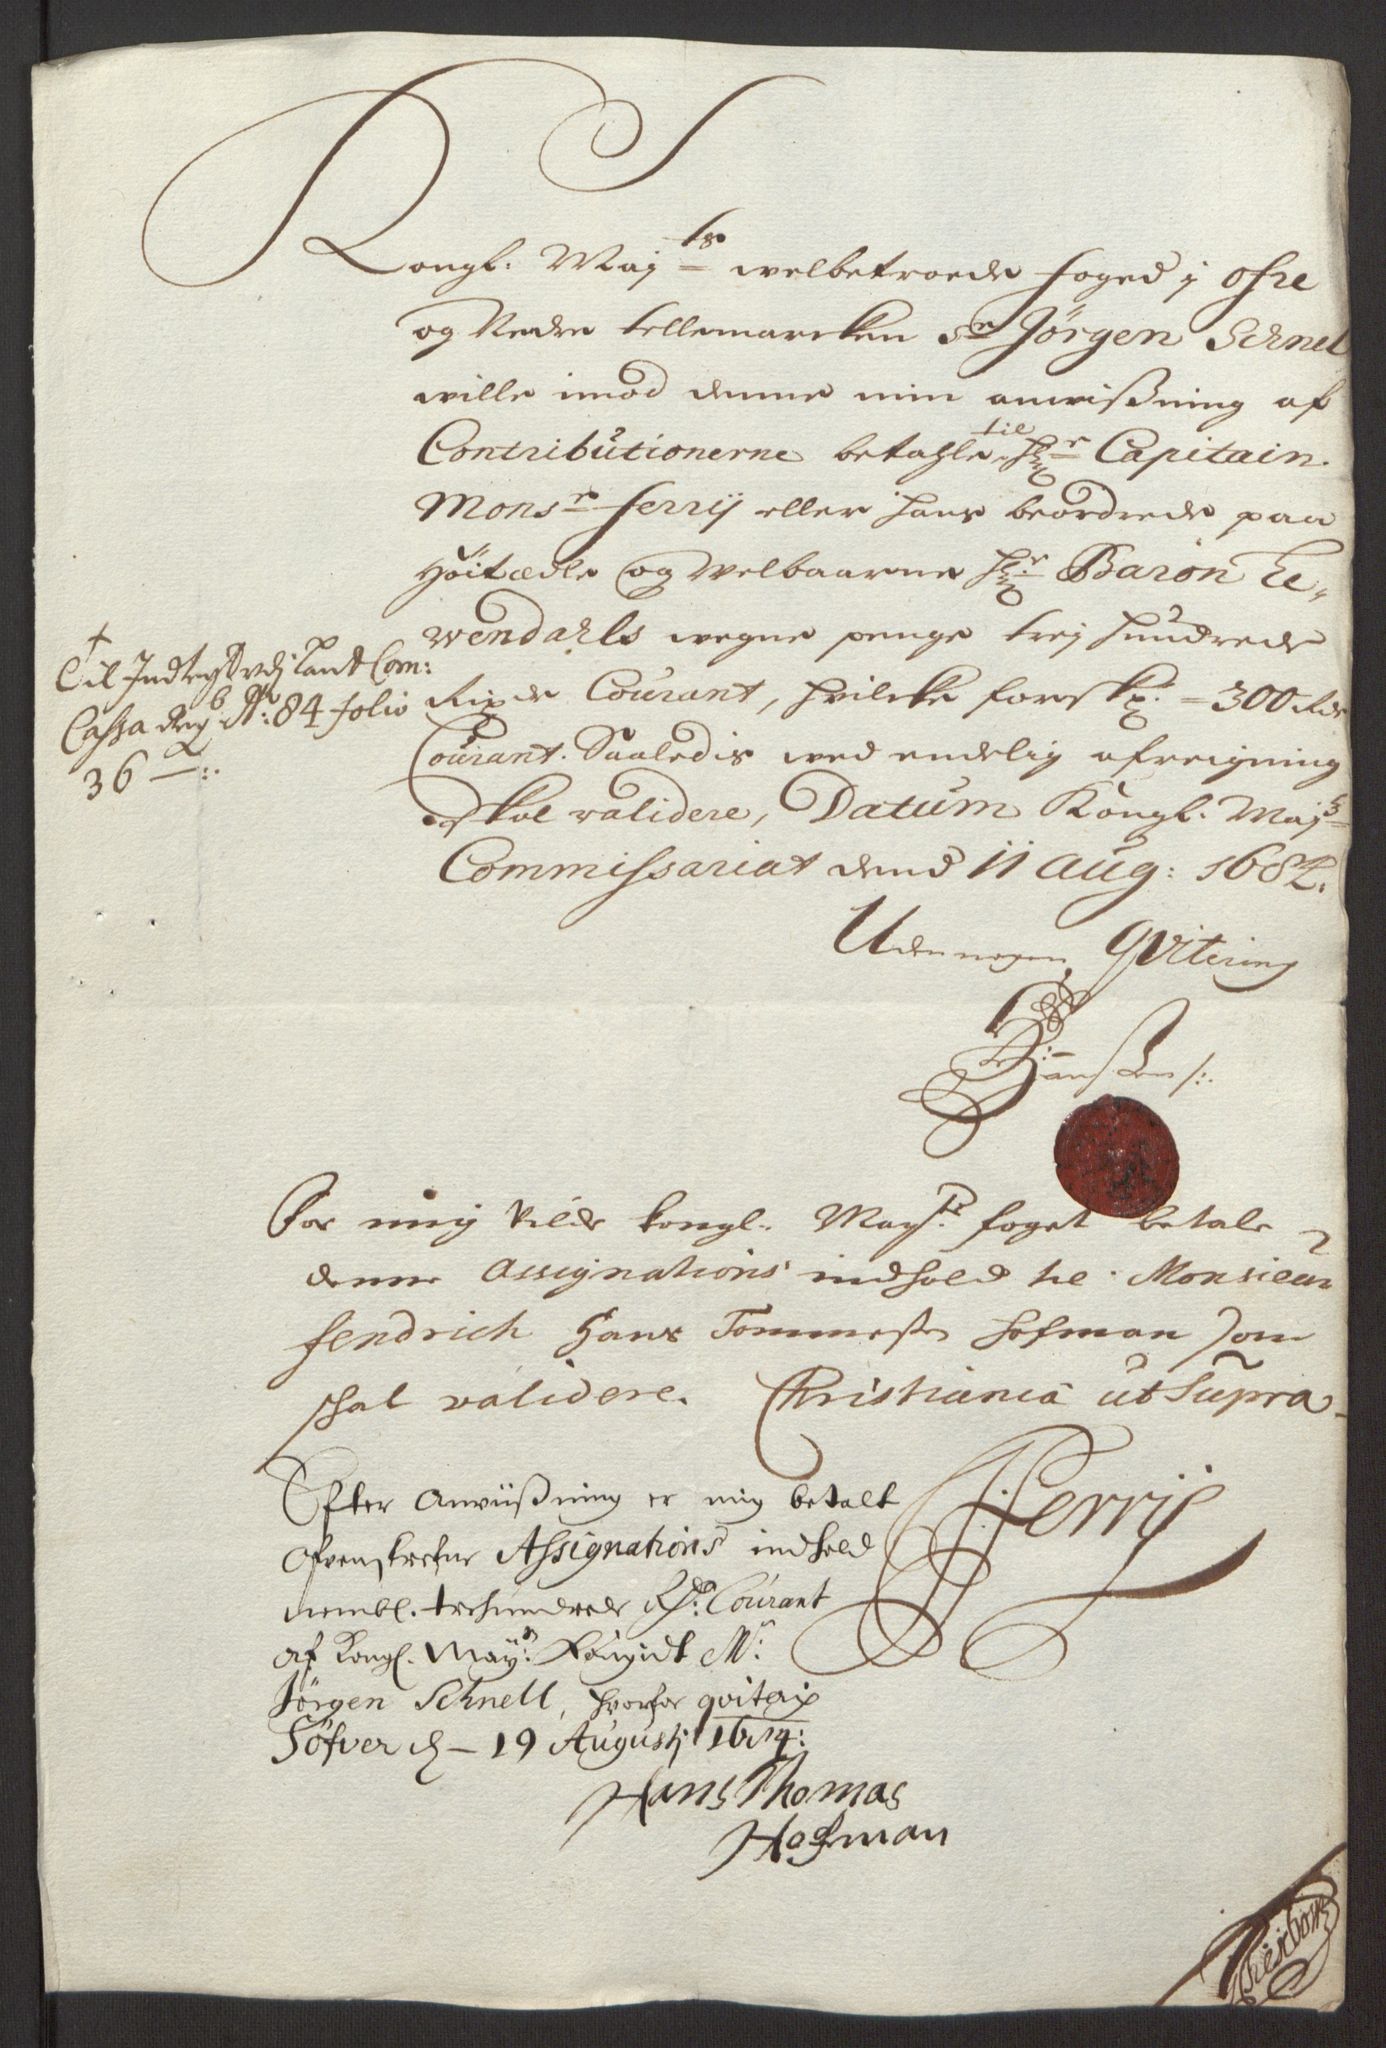 Kongl: Maj ts welbetroede foged j ofre
og Nedre tellemarcken Sr Jörgen Schnel
wille imod denne min anwißning af
Contributionerne betahle til Hr Capitain
Monsr ferrij eller hans beordrede paa
Höitædle og Welbaarne Hr Baron Le,,
wendahls wegne penge trej hundrede
Rixdr Courant, hvilcke forskr: = 300 Rdr
Courant. Saaledis wed endelig afreigning
skal validere, Datum Kongl. Majts
Commissariat dend 11 Aug: 1684.
Uden nogen Qvitering
Hansen
Til Indtegt vdj Land Com:
Cassa Reg No: 84 folio
36
For mig wilde kongl. Mayts foget betale
denne Assignations indhold til Monsieur
fendrich Hans Tommesen Hofman som
schal validere. Christiania ut Supra
JFerrij
Efter Anwiißning er mig betalt
Ofvenskrefne Assignations indhold
nembl. trehundrede Rdr Courant
af Kongl. Mayts fougidt Mr
Jörgen Schnell, hvorfor qviteris
Söfver d – 19 Augustj 1684:
Hans Thomas
Hofman